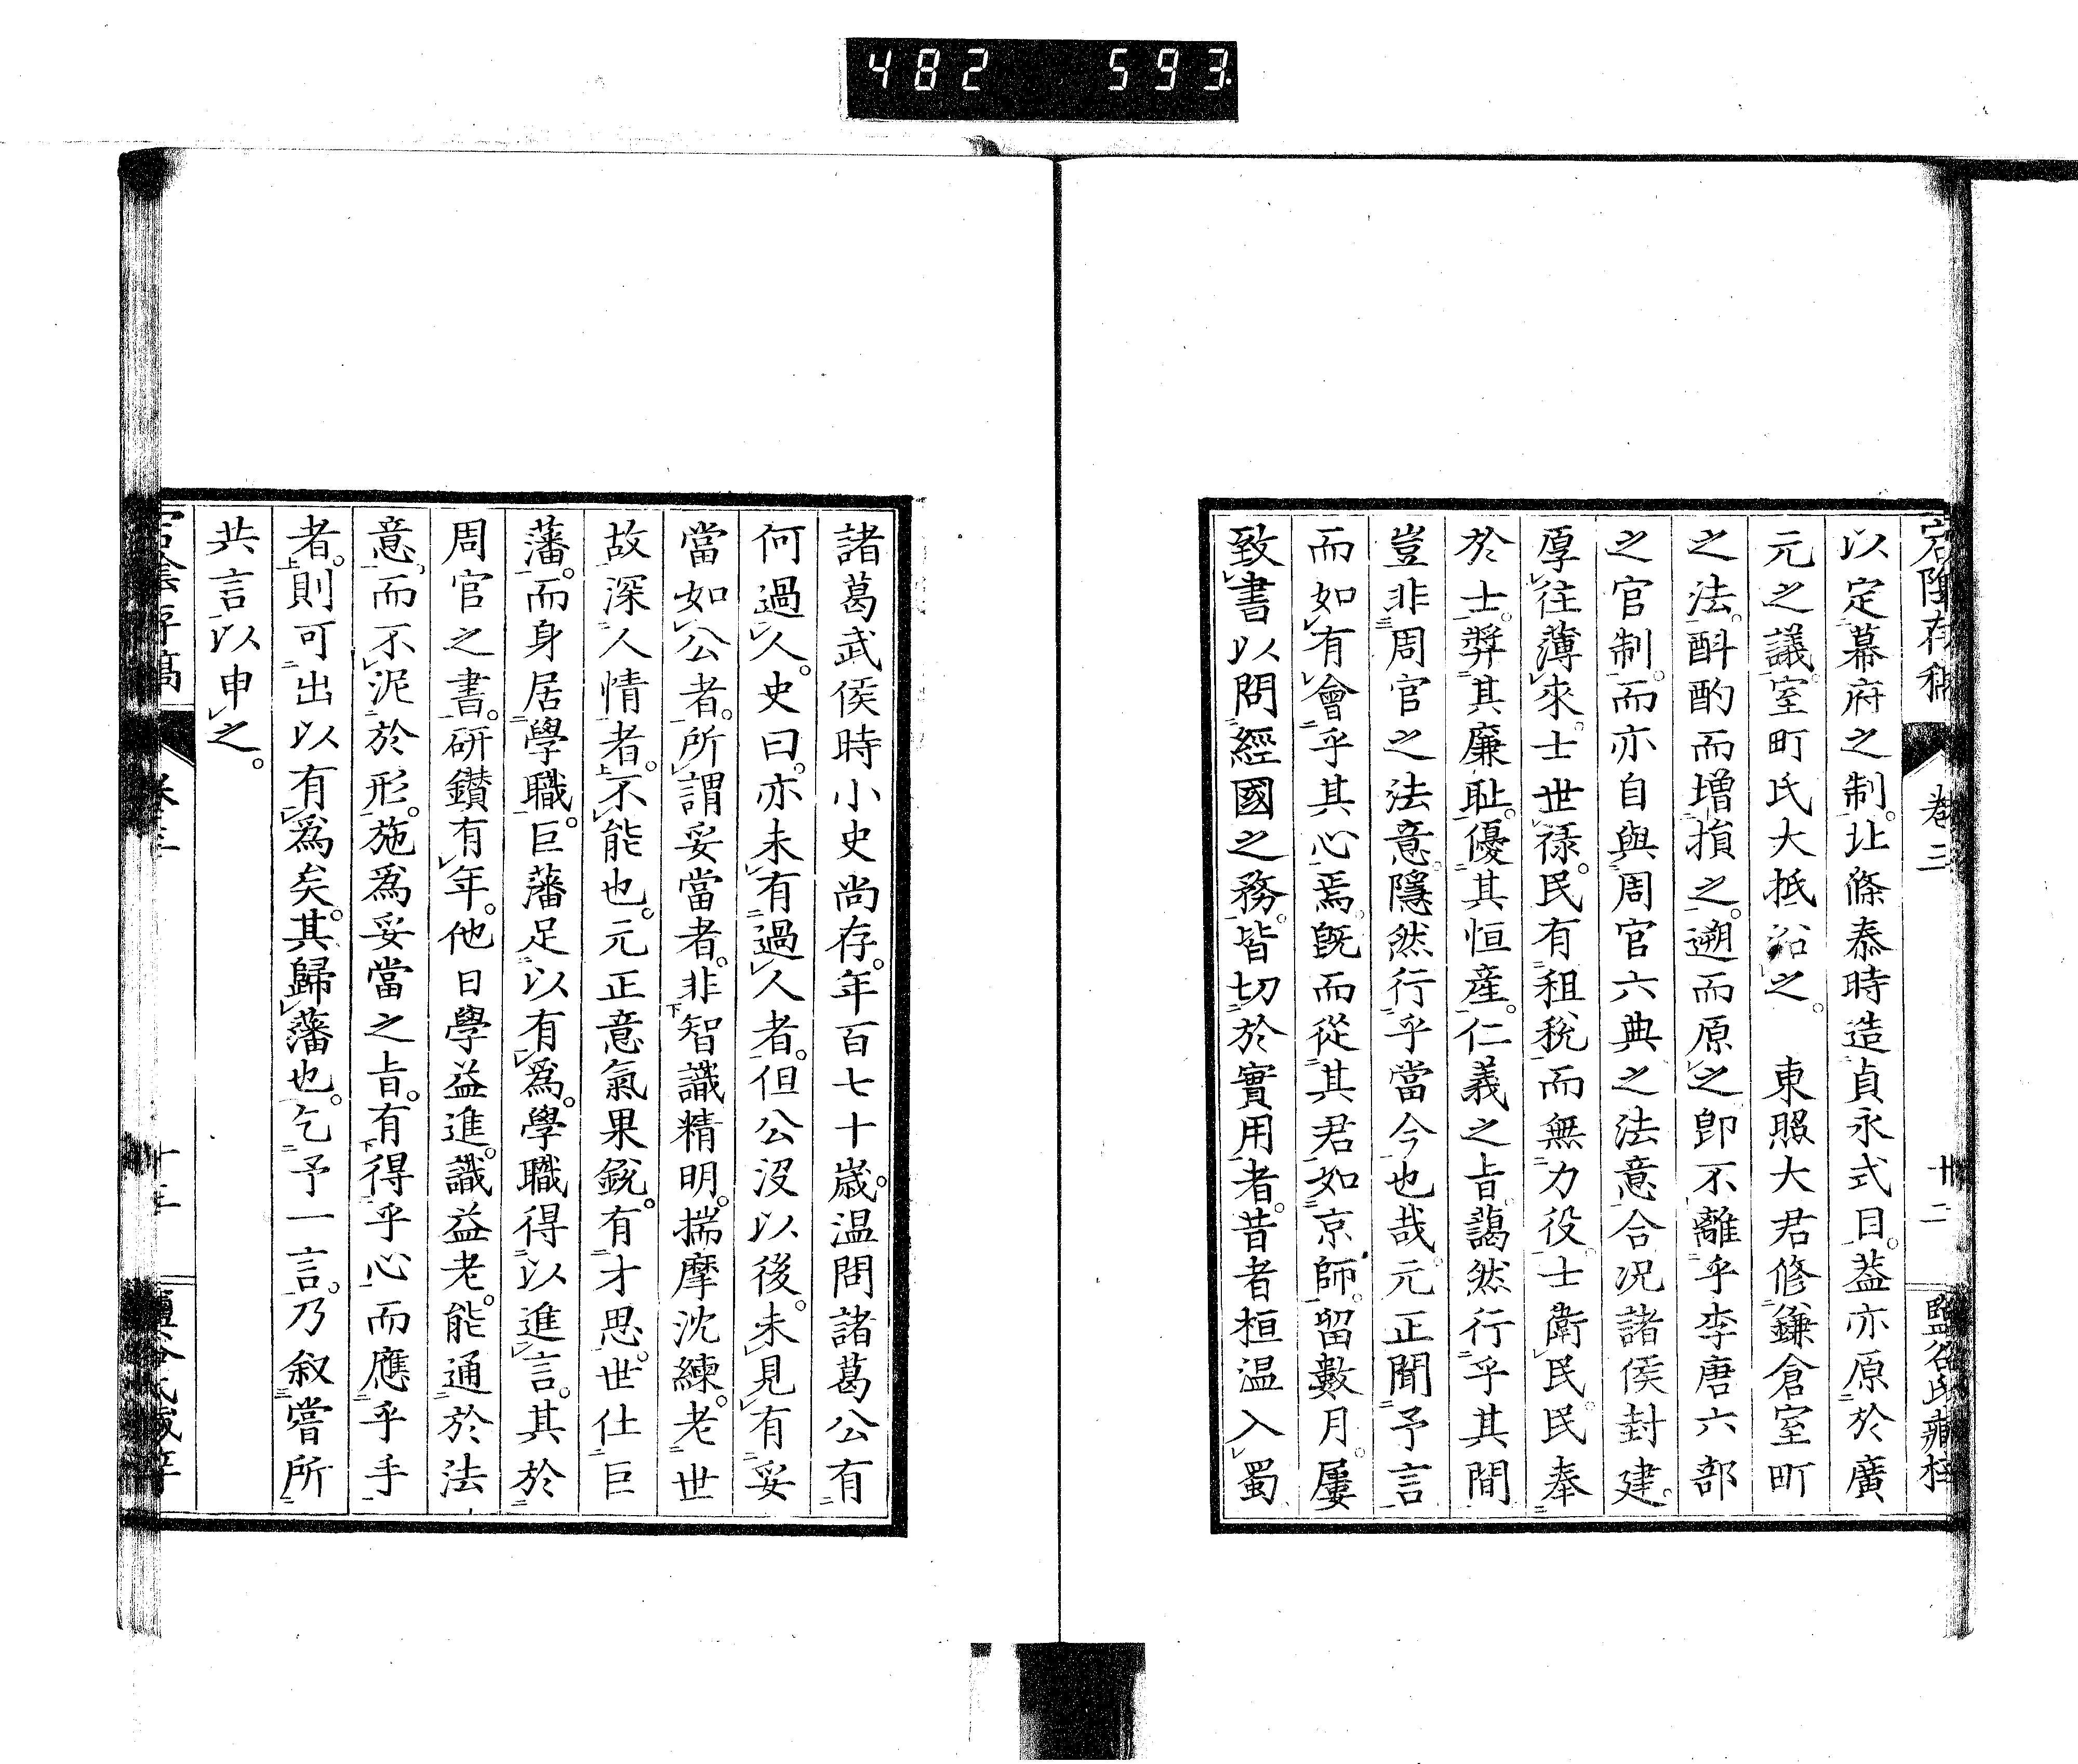 482 593
宕陰存稿 卷三 廿二 鹽谷氏藏梓
以定幕府之制。北條泰時造貞永式目。葢亦原於廣
元之議。室町氏大抵沿之。 東照大君修鎌倉室町
之法。斟酌而增損之。遡而原之。卽不離乎李唐六部
之官制。而亦自與周官六典之法意合。况諸侯封建。
厚往薄來。士世祿。民有租稅而無力役。士衛民。民奉
於士。奬其廉耻。優其恒產。仁義之旨。藹然行乎其間。
豈非周官之法意。隱然行乎當今也哉。元正聞予言
而如有會乎其心焉。旣而從其君如京師。留數月。屢
致書以問經國之務。皆切於實用者。昔者桓温入蜀
諸葛武侯時小史尚存。年百七十歲。温問諸葛公有
何過人。史曰。亦未有過人者。但公沒以後。未見有妥
當如公者。所謂妥當者。非智識精明。揣摩沈練。老世
故深人情者。不能也。元正意氣果銳。有才思。世仕巨
藩。而身居學職。巨藩足以有爲。學職得以進言。其於
周官之書。研鑚有年。他日學益進。識益老。能通於法
意。而不泥於形。施爲妥當之旨。有得乎心而應乎手
者。則可出以有爲矣。其歸藩也。乞予一言。乃叙嘗所
共言以申之。